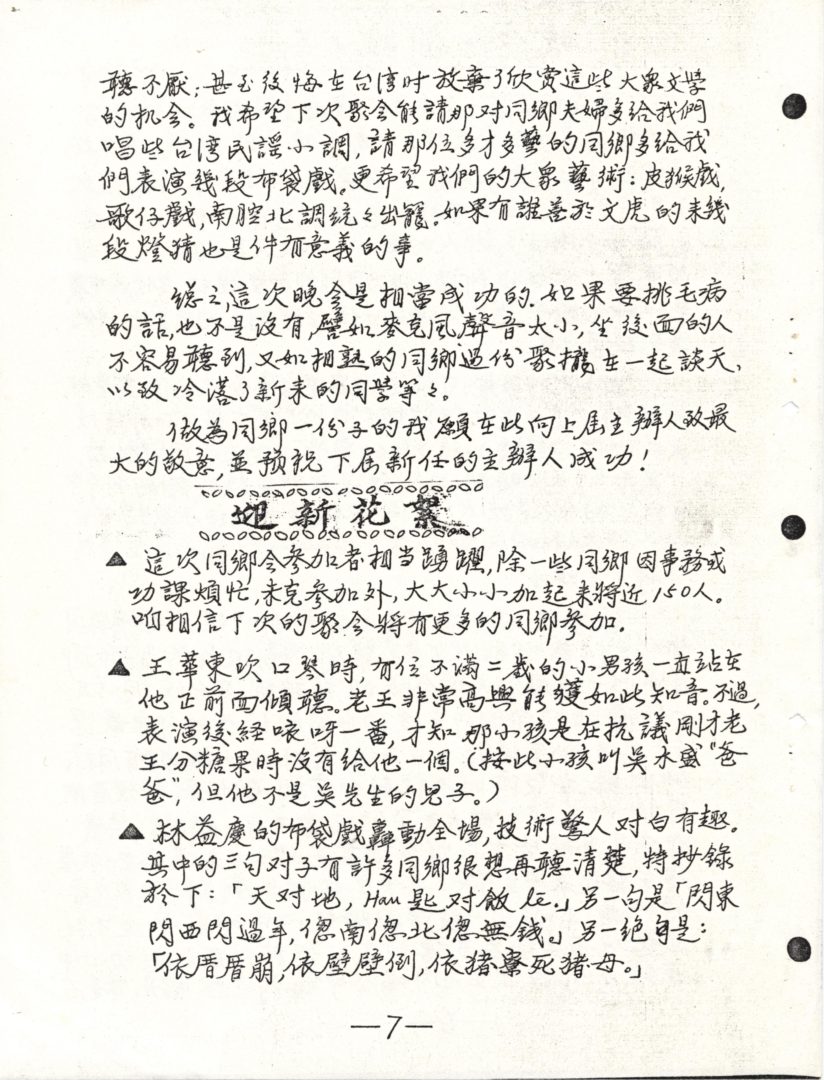 聽不厭；甚至後悔在台湾时放棄了欣賞這些大衆文學
的机会。我希望下次聚会能請那对同鄉夫婦多給我們
唱些台湾民謠小調，請那位多才多藝的同鄉多給我
們表演幾段布袋戲。更希望我們的大衆藝術：皮猴戲，
歌仔戲，南腔北調統々出籠。如果有誰善於文虎的来幾
段燈猜也是件有意義的事。
総之，這次晚会是相當成功的。如果要挑毛病
的話，也不是沒有，譬如麥克風聲音太小，坐後面的人
不容易聽到，又如相熟的同鄉過份聚攏在一起談天，
以致冷落了新来的同學等々。
做為同鄉一份子的我願在此向上屆主辦人致最
大的敬意，並預祝下屆新任的主辦人成功！
迎新花絮
▲ 這次同鄉会参加者相当踴躍，除一些同鄉因事務或
功課煩忙，未克参加外，大大小小加起来將近150人。
咱相信下次的聚会將有更多的同鄉参加．
▲ 王華東吹口琴時，有位不满二歲的小男孩一直站在
他正前面傾聽。老王非常高興能獲如此知音。不過，
表演後経咳呀一番，才知那小孩是在抗議剛才老
王分糖果時沒有給他一個。（按此小孩叫吳木盛“爸
爸”，但他不是吳先生的兒子。）
▲ 林益慶的布袋戲轟動全場，技術驚人对白有趣。
其中的三句对子有許多同鄉很想再聽清楚，特抄錄
於下：「天对地，Han匙对飯le.」另一句是「閃東
閃西閃過年，偬南偬北偬無錢。」另一絶句是：
「依厝厝崩，依壁壁倒，依猪寮死猪母。」
—7—